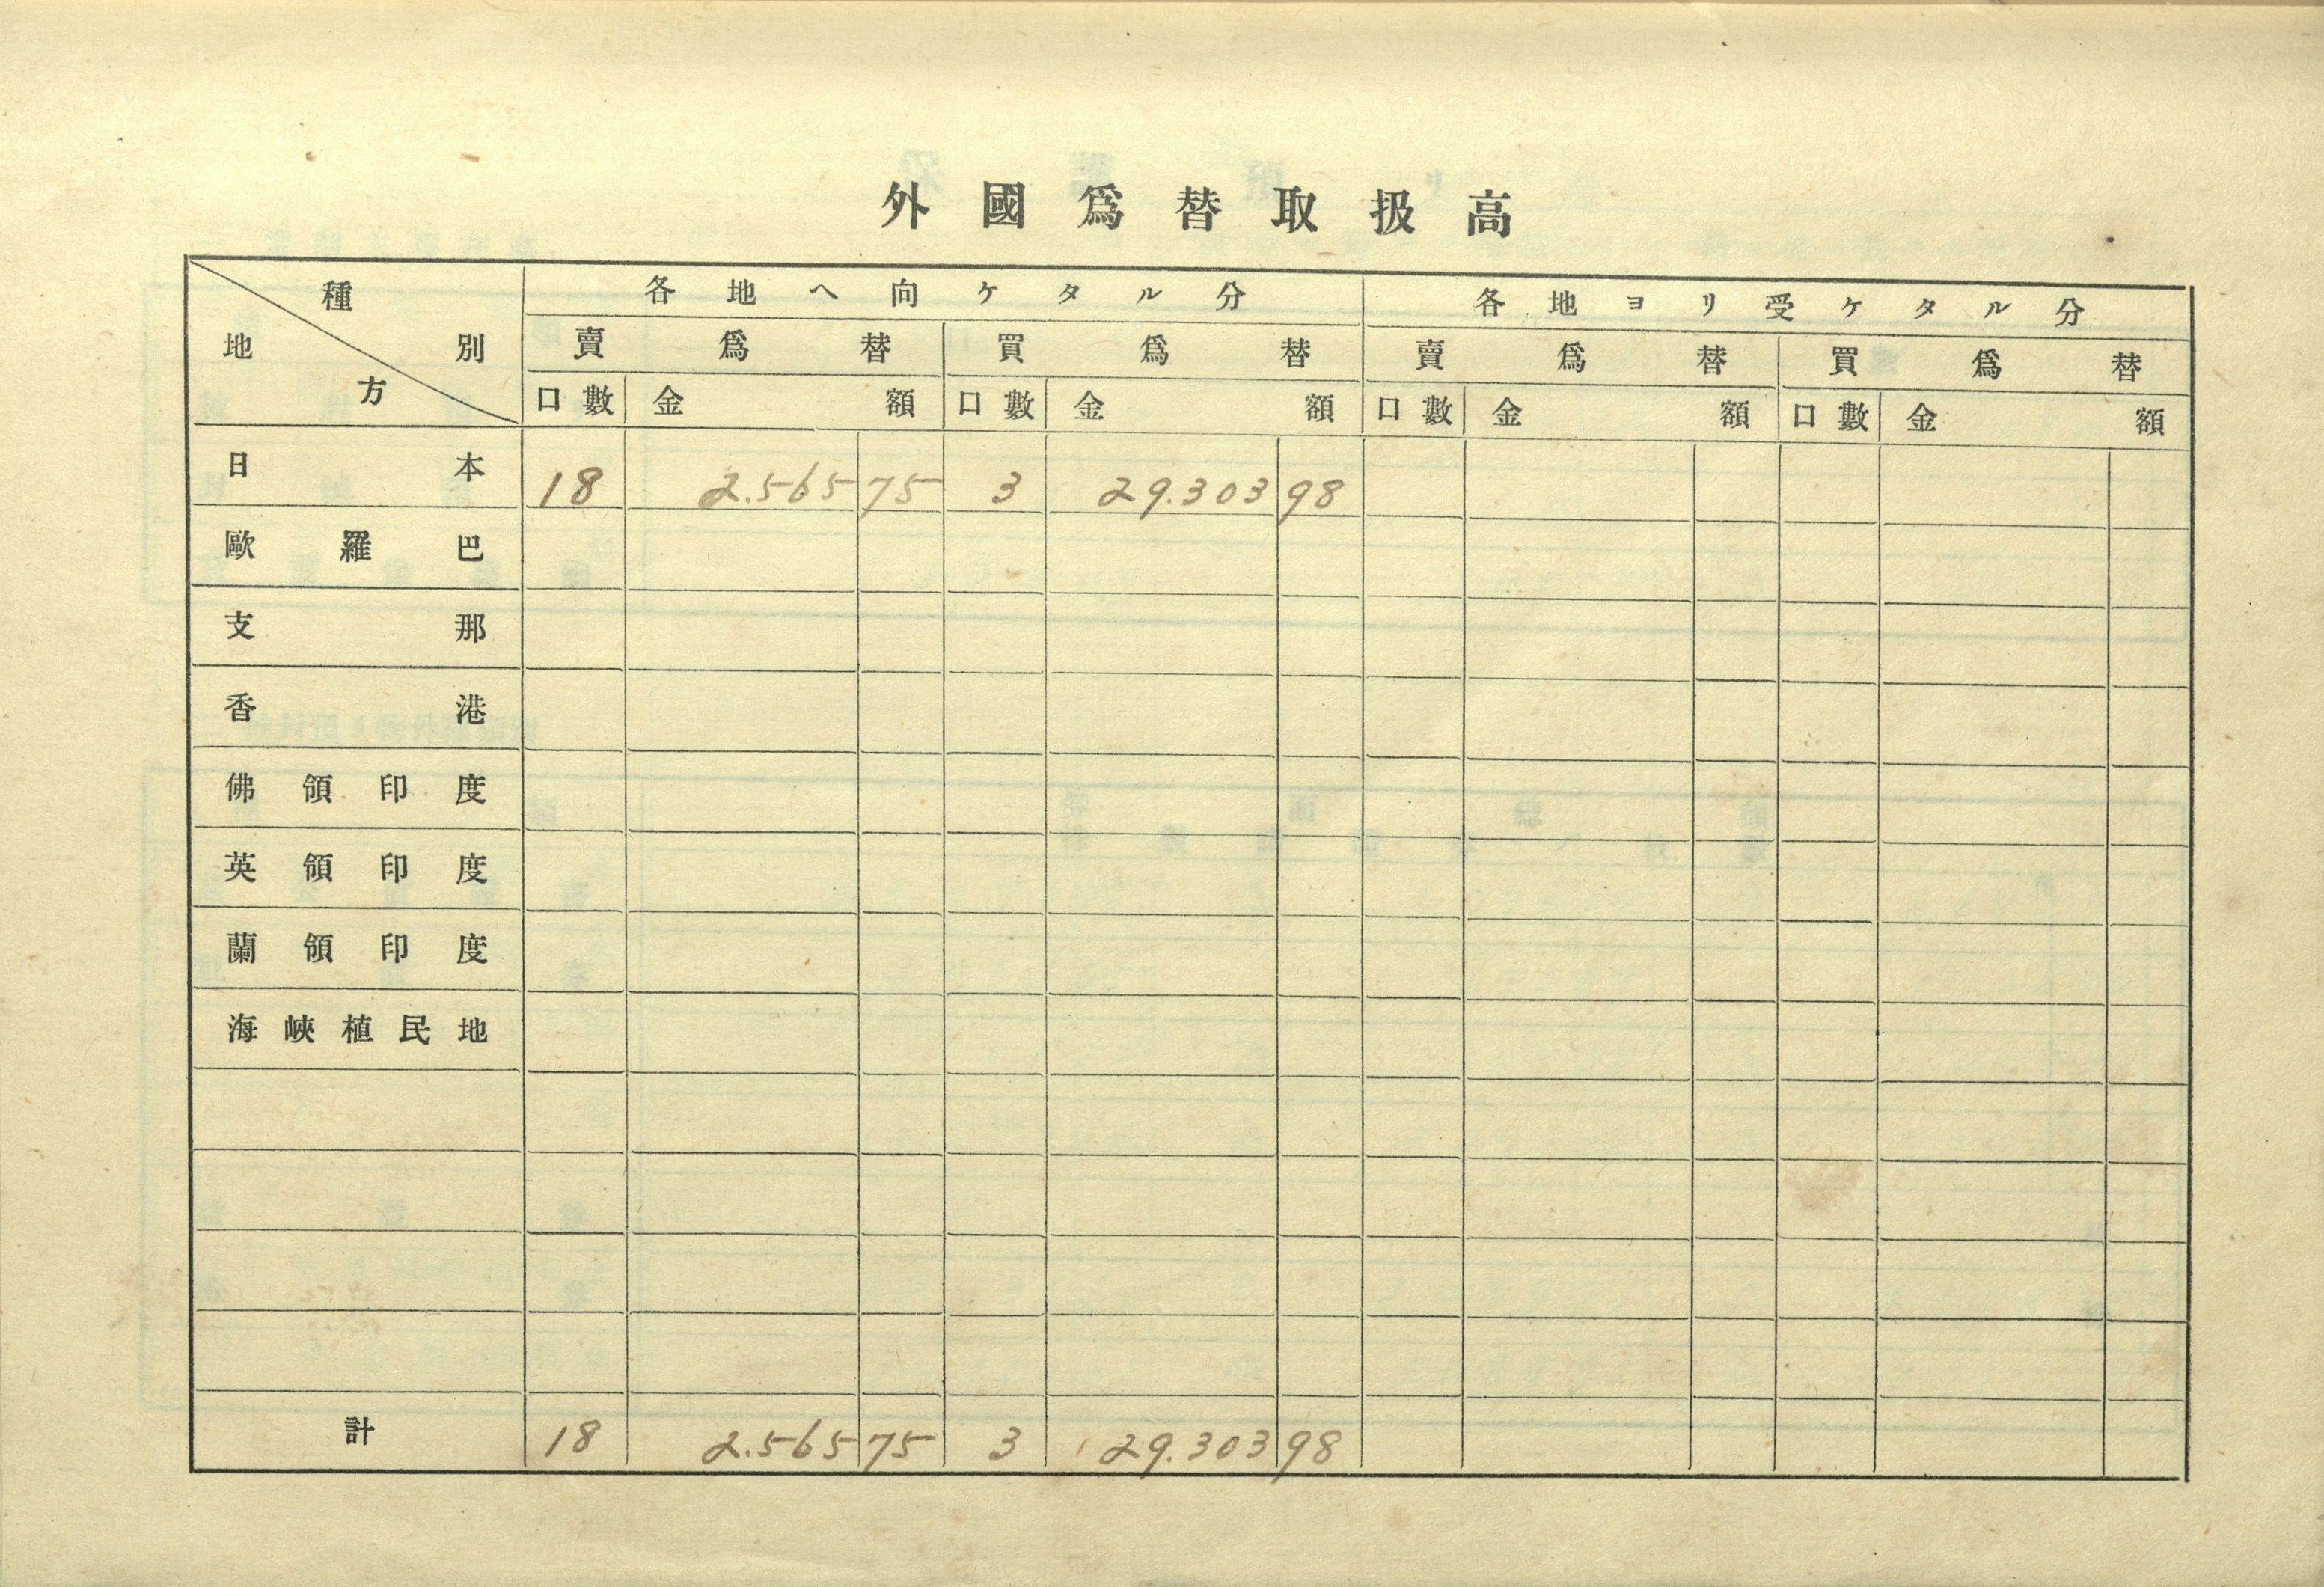 外國爲替取扱高
種別 地方 各地ヘ向ケタル分 各地ヨリ受ケタル分
賣爲替 買爲替 賣爲替 買爲替
口數 金額 口數 金額 口數 金額 口數 金額
日本 18 2.565 75 3 29.303 98
歐羅巴
支那
香港
佛領印度
英領印度
蘭領印度
海峽植民地
計 18 2.565 75 3 29.303 98